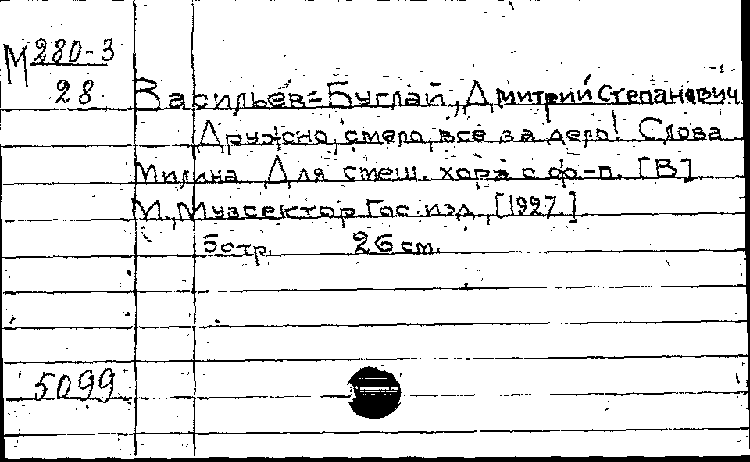 М 280-3
28
Васильев=Буглай, Дмитрий Степанович
Дружно, смело, все за дело! Слова
Милина Для смеш. хора с ф-п. [В]
М., Музсектор Гос.изд., [1927.]
5стр. 26 см.
5099